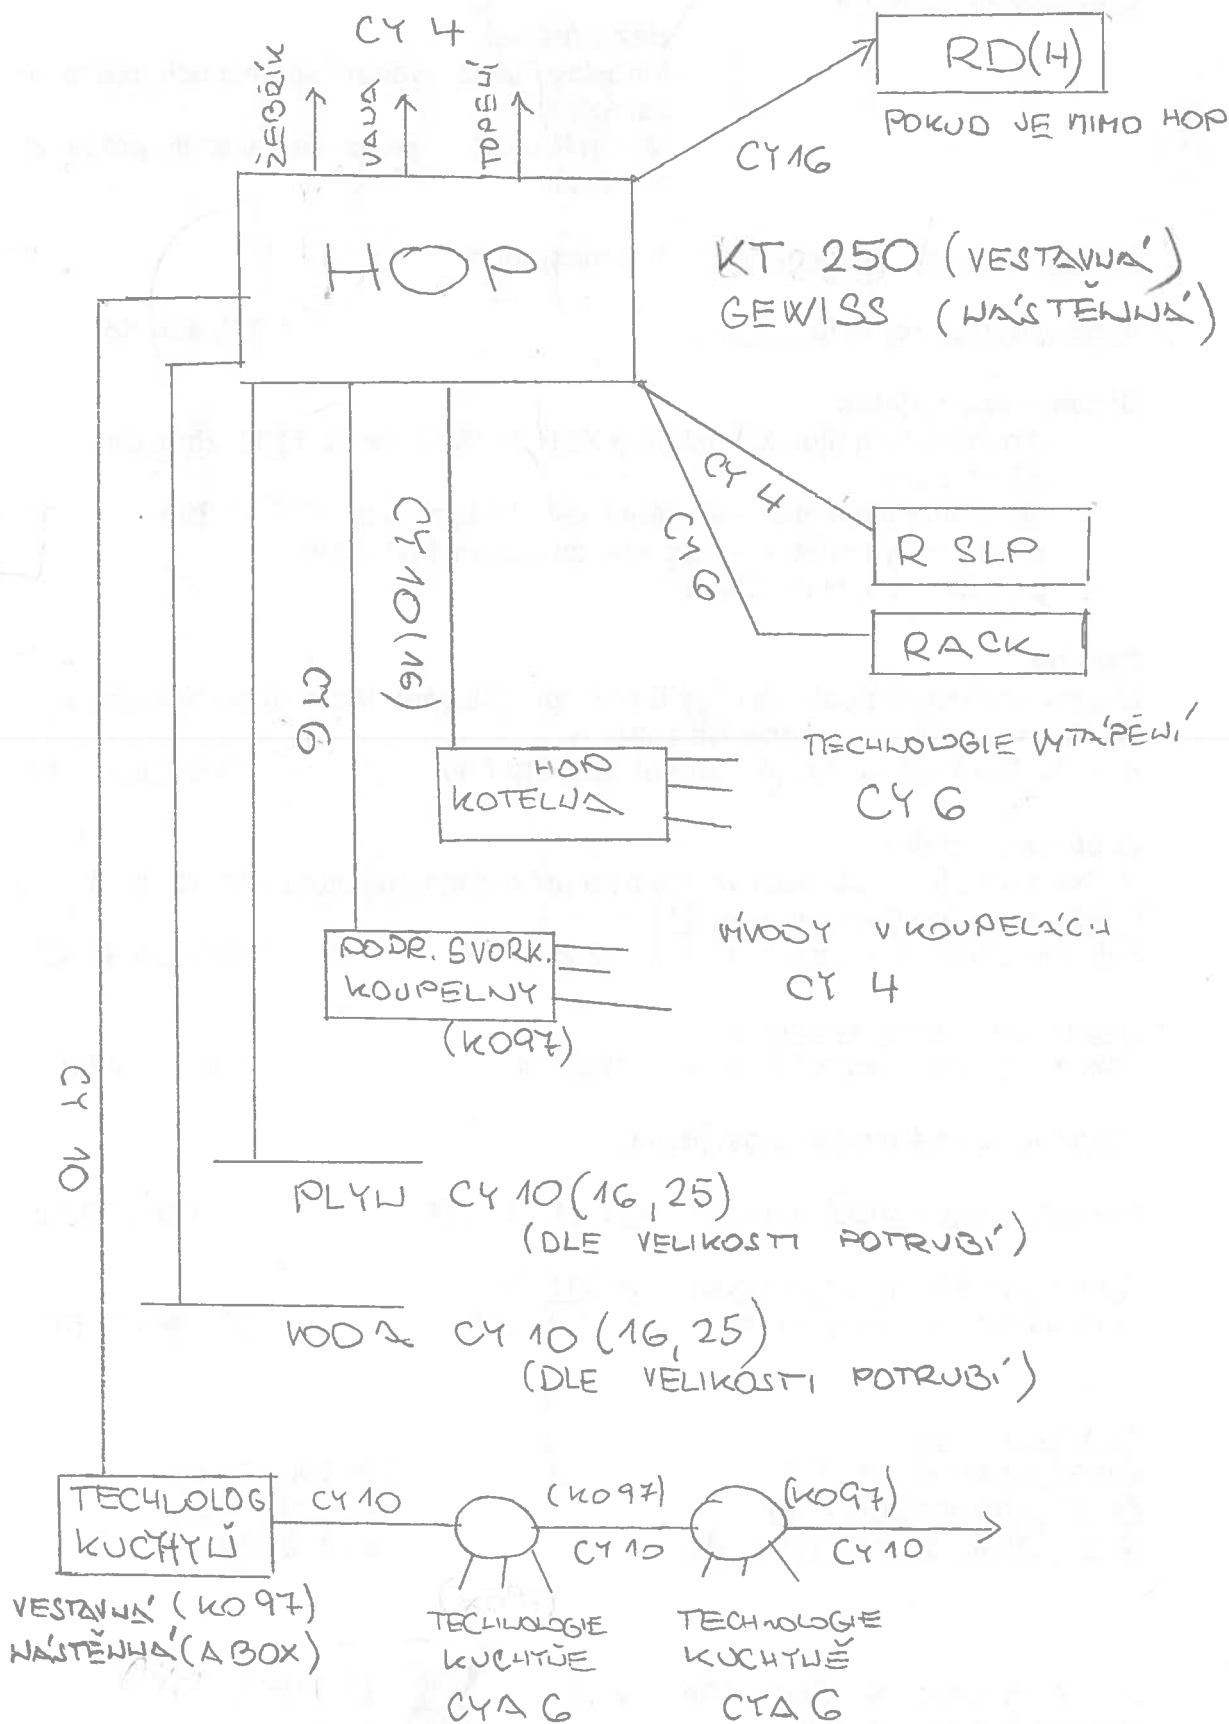 CY 4
ŽEBŘÍK
VANA
TOPENÍ
RD(H)
POKUD JE MIMO HOP
CY16
HOP
KT 250 (VESTAVNÁ)
GEWISS (NÁSTĚNNÁ)
CY 4
CY 6
R SLP
RACK
CY10(16)
CY6
HOP
KOTELNA
TECHNOLOGIE VYTÁPĚNÍ
CY 6
PODR. SVORK.
KOUPELNY
(KO97)
VÝVODY V KOUPELÁCH
CY 4
CY 10
PLYN CY 10 (16,25)
(DLE VELIKOSTI POTRUBÍ)
VODA CY 10 (16,25)
(DLE VELIKOSTI POTRUBÍ)
TECHNOLOG
KUCHYNĚ
VESTAVNÁ (KO 97)
NÁSTĚNNÁ (A BOX)
CY 10
(KO97)
CY 10
(KO97)
CY 10
TECHNOLOGIE
KUCHYNĚ
CYA 6
TECHNOLOGIE
KUCHYNĚ
CYA 6